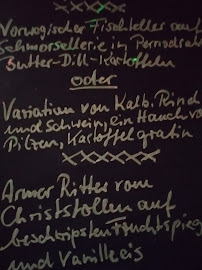 Norwegischer Fischteller auf
Schmorsellerie in Pernodrah
Butter-Dill-Kartoffeln
oder
Variation von Kalb, Rind
und Schwein, ein Hauch von
Pilzen, Kartoffelgratin
XXXXXX
Armer Ritter vom
Christstollen auf
beschwipsten Fruchtspieg
und Vanilleeis